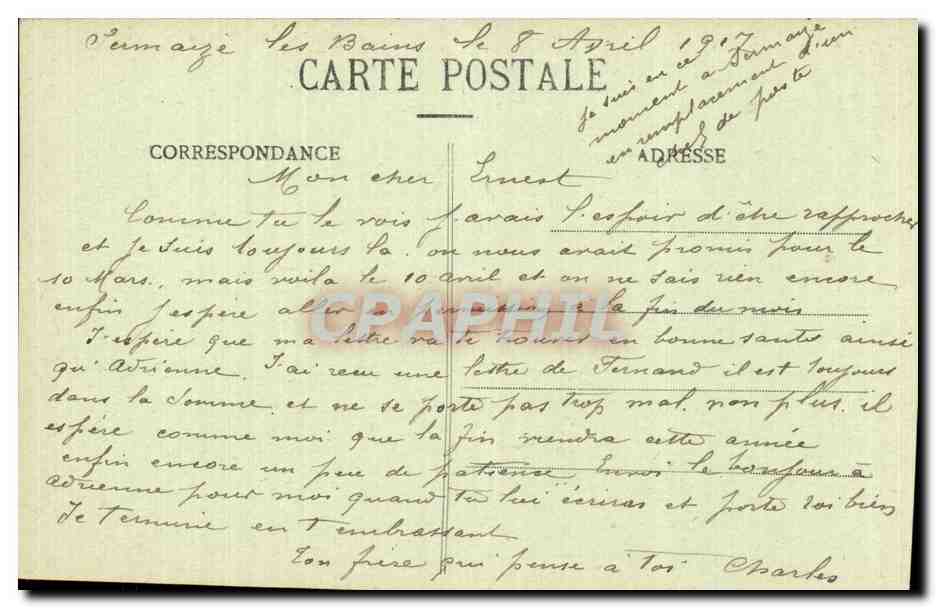 Sermaize les Bains le 8 Avril 1917
CARTE POSTALE
Je suis en ce
moment a Sermaize
en remplacement d'un
chef de poste
CORRESPONDANCE
ADRESSE
Mon cher Ernest
Comme tu le vois j'avais l'espoir d'être rapprocher
et je suis toujours la. on nous avait promis pour le
10 Mars, mais voila le 10 avril et on ne sais rien encore
enfin j'espère aller en permission a la fin du mois
J'espère que ma lettre va te trouver en bonne santé ainsi
qu'Adrienne. J'ai recu une lettre de Fernand il est toujours
dans la Somme et ne se porte pas trop mal non plus. il
espère comme moi que la fin viendra cette année
enfin encore un peu de patience. Envoi le bonjour à
Adrienne pour moi quand tu lui écriras et porte toi bien
Je termine en t'embrassant
Ton frère qui pense à toi Charles
CPAPHIL